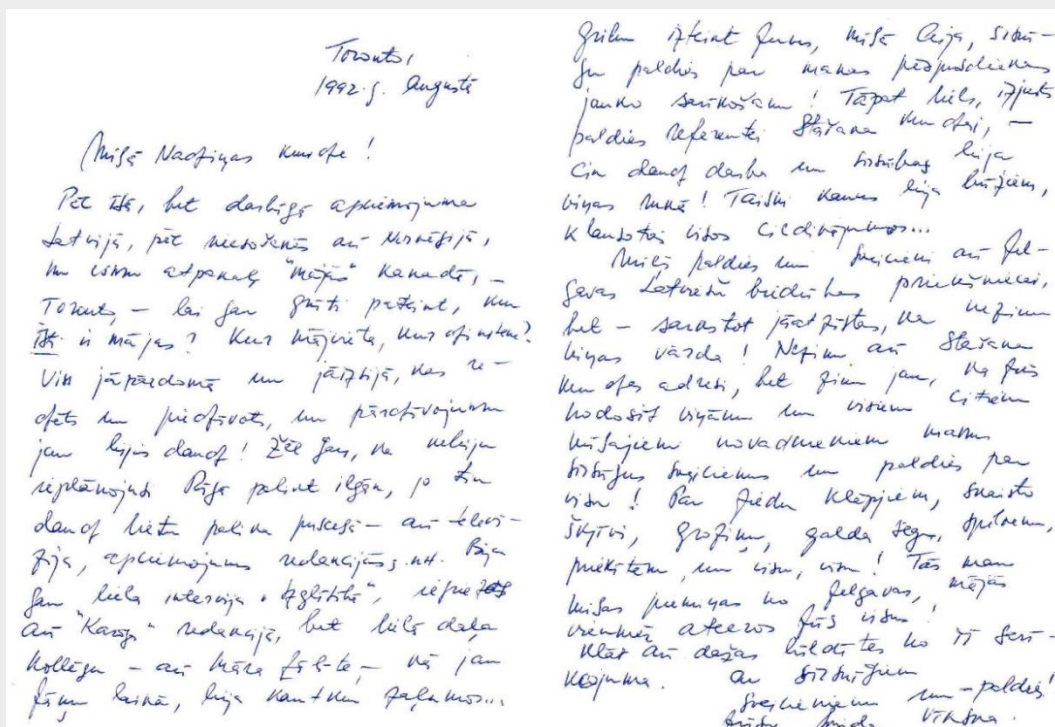 Toronto,
1992.g. Augustā
Mīļā Nadziņas kundze!
Pēc īsā, bet darbīgā apciemojuma
Latvijā, pēc viesošanās arī Norvēģijā,
nu esmu atpakaļ "mājās" Kanādā, –
Toronto, – lai gan grūti pateikt, kur
īsti ir mājas? Kur mājvieta, kur dzimtene?
Viss jāpārdomā un jāizbij, kas re-
dzēts un piedzīvots, un pārdzīvojumu
jau bijis daudz! Žēl gan, ka nebiju
ieplānojusi Rīgā palikt ilgāk, jo tik
daudz lietu palika pusceļā – arī televī-
zija, apciemojums redakcijās utt. Bija
gan liela intervija "Izglītībā", iegriezos
arī "Karogs" redakcijā, bet lielā daļa
kollēgu – arī Māra – kā jau
Jāņu laikā, bija kaut kur zaļumos...
Gribu izteikt Jums, mīļā, sirsnī-
gu paldies par manas pēcpusdienas
jauko sarīkošanu! Tāpat liels, izjusts
paldies referentei kundzei, –
cik daudz darba un sirsnības bija
viņas runā! Taisni kauns bija brīžiem,
klausoties visos cildinājumos...
Mīļš paldies un sveiciens arī Jel-
gavas Latviešu biedrības priekšniecei,
bet – sarkstot jāatzīstas, ka nezinu
viņas vārda! Nezinu arī
kundzes adresi, bet zinu jau, ka Jūs
nodosit viņām un visiem citiem
mūsajiem novadniekiem manus
sirsnīgus sveicienus un paldies par
visu! Par ziedu klēpjiem, skaisto
šķīvi, groziņu, galda segu, spilvenu,
un visu, visu! Tās man
mīļas piemiņas no Jelgavas, mājās
vienmēr atceros Jūs visus!
Klāt arī dažas bildītes no šī sarī-
kojuma. Ar sirsnīgiem
sveicieniem un – paldies!
Jūsu Aida Vīksna.